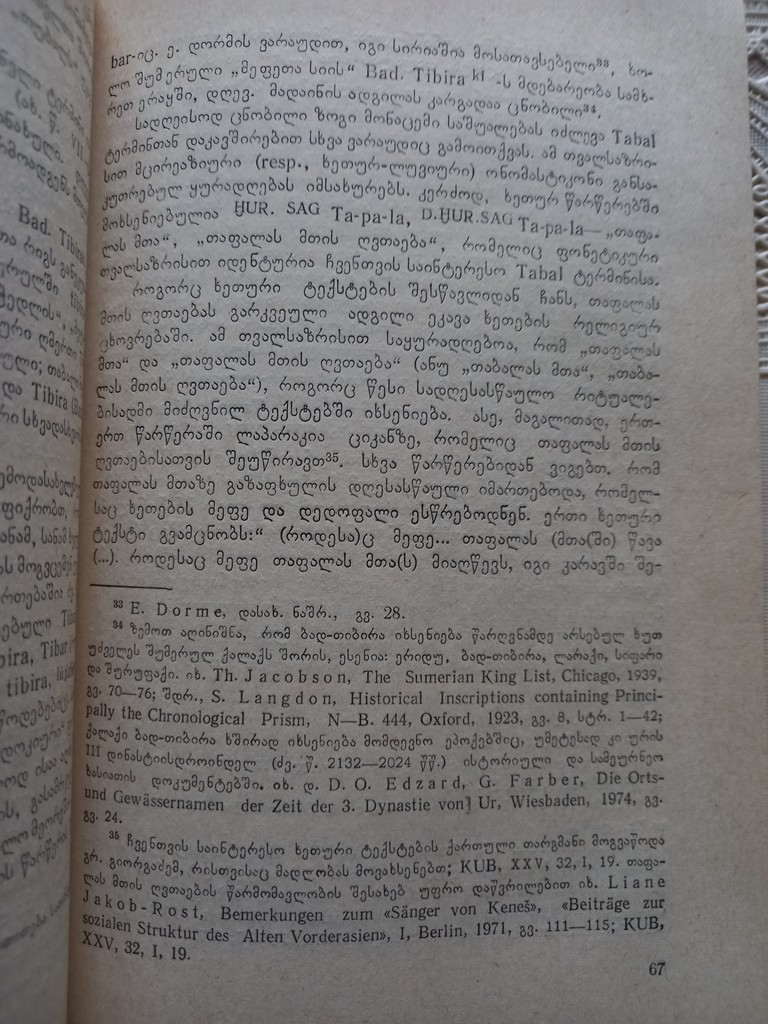 bar-იც. ე. დორმის ვარაუდით, იგი სირიაშია მოსათავსებელი³³, ხო-
ლო შუმერული „მეფეთა სიის“ Bad. Tibira ᵏⁱ -ს მდებარეობა სამხ-
რეთ ერაყში, დღევ. მადაინის ადგილას კარგადაა ცნობილი³⁴.
სადღეისოდ ცნობილი ზოგი მონაცემი საშუალებას იძლევა Tabal
ტერმინთან დაკავშირებით სხვა ვარაუდიც გამოითქვას. ამ თვალსაზრი-
სით მცირეაზიური (resp., ხეთურ-ლუვიური) ონომასტიკონი განსა-
კუთრებულ ყურადღებას იმსახურებს. კერძოდ, ხეთურ წარწერებში
მოხსენიებულია ḪUR. SAG Ta-pa-la, D.ḪUR.SAG Ta-pa-la—„თაფა-
ლას მთა“, „თაფალას მთის ღვთაება“, რომელიც ფონეტიკური
თვალსაზრისით იდენტურია ჩვენთვის საინტერესო Tabal ტერმინისა.
როგორც ხეთური ტექსტების შესწავლიდან ჩანს, თაფალას
მთის ღვთაებას გარკვეული ადგილი ეკავა ხეთების რელიგიურ
ცხოვრებაში. ამ თვალსაზრისით საყურადღებოა, რომ „თაფალას
მთა“ და „თაფალას მთის ღვთაება“ (ანუ „თაბალას მთა“, „თაბა-
ლას მთის ღვთაება“), როგორც წესი სადღესასწაულო რიტუალე-
ბისადმი მიძღვნილ ტექსტებში იხსენიება. ასე, მაგალითად, ერთ-
ერთ წარწერაში ლაპარაკია ციკანზე, რომელიც თაფალას მთის
ღვთაებისათვის შეუწირავთ³⁵. სხვა წარწერებიდან ვიგებთ, რომ
თაფალას მთაზე გაზაფხულის დღესასწაული იმართებოდა, რომელ-
საც ხეთების მეფე და დედოფალი ესწრებოდნენ. ერთი ხეთური
ტექსტი გვამცნობს:“ (როდესა)ც მეფე... თაფალას (მთა(ში) წავა
(...). როდესაც მეფე თაფალას მთა(ს) მიაღწევს, იგი კარავში შე-
³³ E. Dorme, დასახ. ნაშრ., გვ. 28.
³⁴ ზემოთ აღინიშნა, რომ ბად-თიბირა იხსენიება წარღვნამდე არსებულ ხუთ
უძველეს შუმერულ ქალაქს შორის, ესენია: ერიდუ, ბად-თიბირა, ლარაქი, სიფარი
და შურუფაქი. იხ. Th. Jacobson, The Sumerian King List, Chicago, 1939,
გვ. 70—76; შდრ., S. Langdon, Historical Inscriptions containing Princi-
pally the Chronological Prism, N—B. 444, Oxford, 1923, გვ. 8, სტრ. 1—42;
ქალაქი ბად-თიბირა ხშირად იხსენიება მომდევნო ეპოქებშიც, უმეტესად კი ურის
III დინასტიისდროინდელ (ძვ. წ. 2132—2024 წწ.) ისტორიული და სამეურნეო
ხასიათის დოკუმენტებში. იხ. დ. D. O. Edzard, G. Farber, Die Orts-
und Gewässernamen der Zeit der 3. Dynastie von Ur, Wiesbaden, 1974, გვ.
გვ. 24.
³⁵ ჩვენთვის საინტერესო ხეთური ტექსტების ქართული თარგმანი მოგვაწოდა
გრ. გიორგაძემ, რისთვისაც მადლობას მოვახსენებთ; KUB, XXV, 32, I, 19. თაფა-
ლას მთის ღვთაების წარმომავლობის შესახებ უფრო დაწვრილებით იხ. Liane
Jakob-Rost, Bemerkungen zum «Sänger von Keneš», «Beiträge zur
sozialen Struktur des Alten Vorderasien», I, Berlin, 1971, გვ. 111—115; KUB,
XXV, 32, I, 19.
67